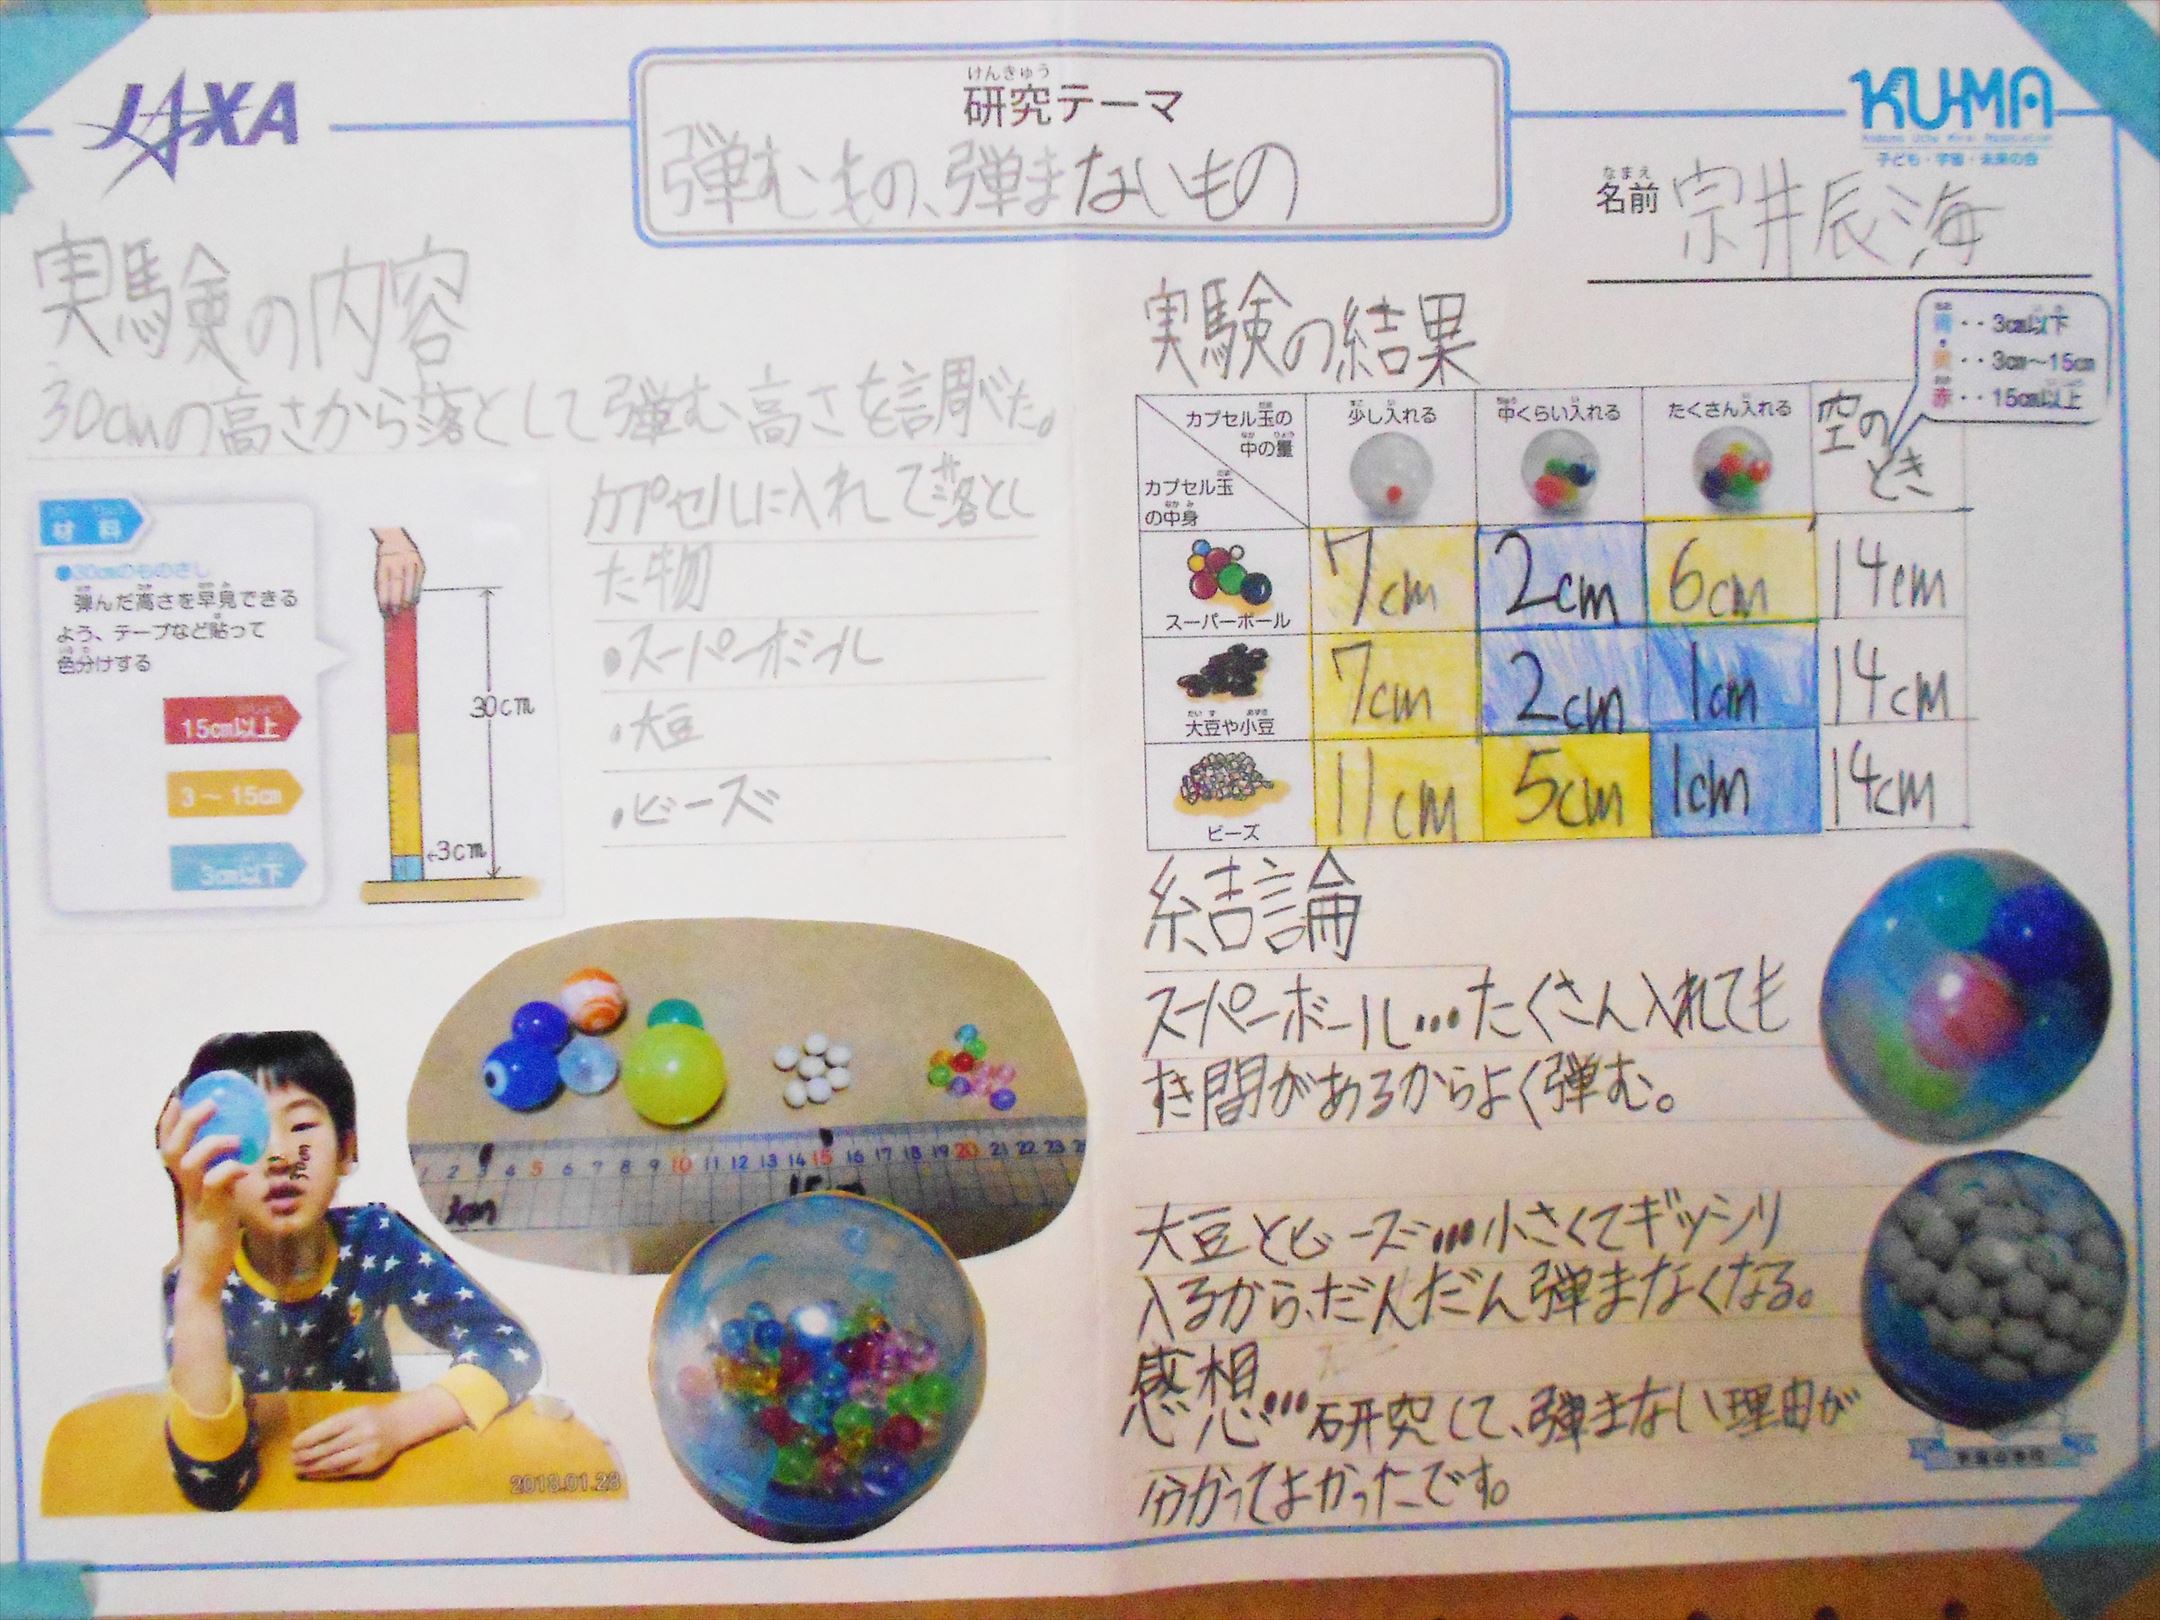 JAXA
けんきゅう
研究テーマ
弾むもの、弾まないもの
KU-MA
子ども・宇宙・未来の会
なまえ
名前 宗井辰海
実験の内容
30cmの高さから落として弾む高さを調べた。
材料
●30cmのものさし
弾んだ高さを早見できる
よう、テープなど貼って
色分けする
15cm以上
3〜15cm
3cm以下
30cm
3cm
カプセルに入れて落とし
た物
•スーパーボール
•大豆
•ビーズ
2018.01.28
3cm
15cm
30cm
1 2 3 4 5 6 7 8 9 10 11 12 13 14 15 16 17 18 19 20 21 22 23 24 25
実験の結果
青・・3cm以下
黄・・3cm〜15cm
赤・・15cm以上
カプセル玉の
中の量
カプセル玉
の中身
少し入れる 中くらい入れる たくさん入れる 空の
とき
スーパーボール 7cm 2cm 6cm 14cm
大豆や小豆 7cm 2cm 1cm 14cm
ビーズ 11cm 5cm 1cm 14cm
結論
スーパーボール…たくさん入れても
すき間があるからよく弾む。
大豆とビーズ…小さくてギッシリ
入るから、だんだん弾まなくなる。
感想…研究して、弾まない理由が
分かってよかったです。
宇宙の学校